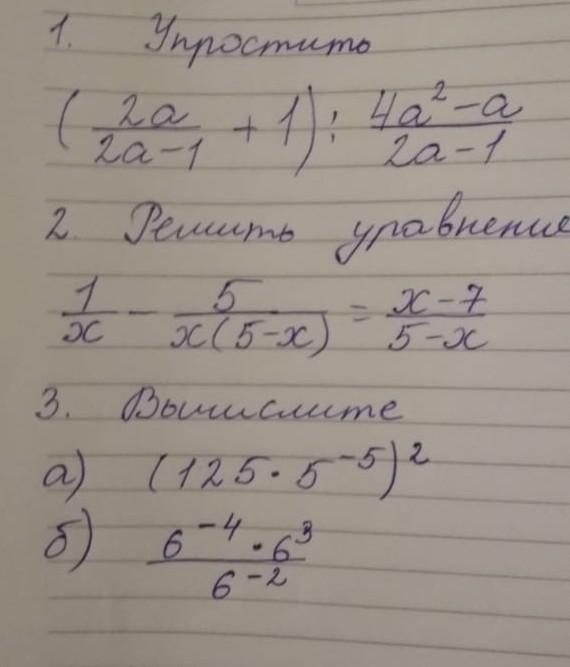 1. Упростить
(2a/(2a-1) + 1) : (4a²-a)/(2a-1)
2. Решить уравнение
1/x - 5/(x(5-x)) = (x-7)/(5-x)
3. Вычислите
а) (125·5⁻⁵)²
б) (6⁻⁴·6³)/6⁻²